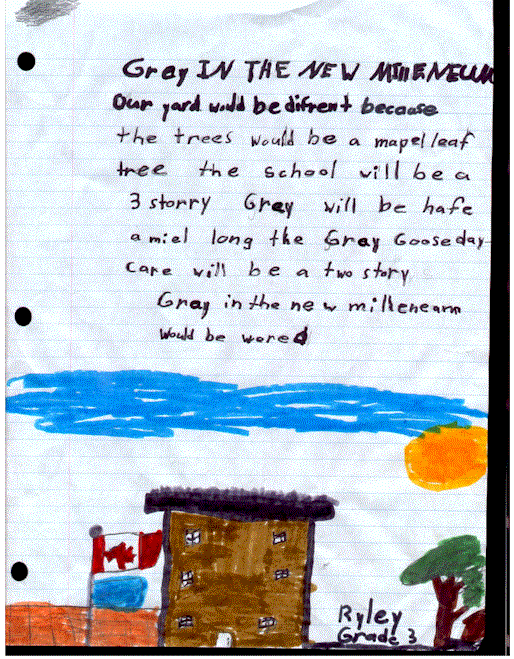 Gray IN THE NEW MIllENEUM
Our yard would be difrent because
the trees would be a mapel leaf
tree the school will be a
3 storry Gray will be hafe
a miel long the Gray Goose day
care will be a two story
Gray in the new milleneam
would be wered
Ryley
Grade 3